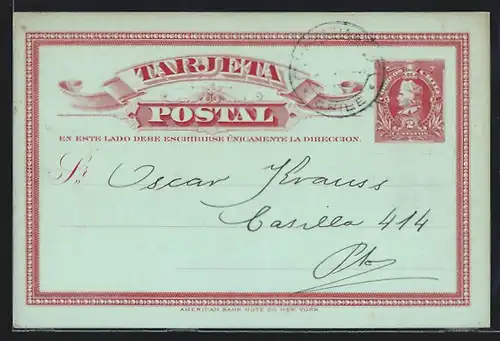 TARJETA
POSTAL
CHILE
2
CENTAVOS
EN ESTE LADO DEBE ESCRIBIRSE ÚNICAMENTE LA DIRECCION.
Sr. Oscar Krauss
Casilla 414
Pte
AMERICAN BANK NOTE CO NEW YORK